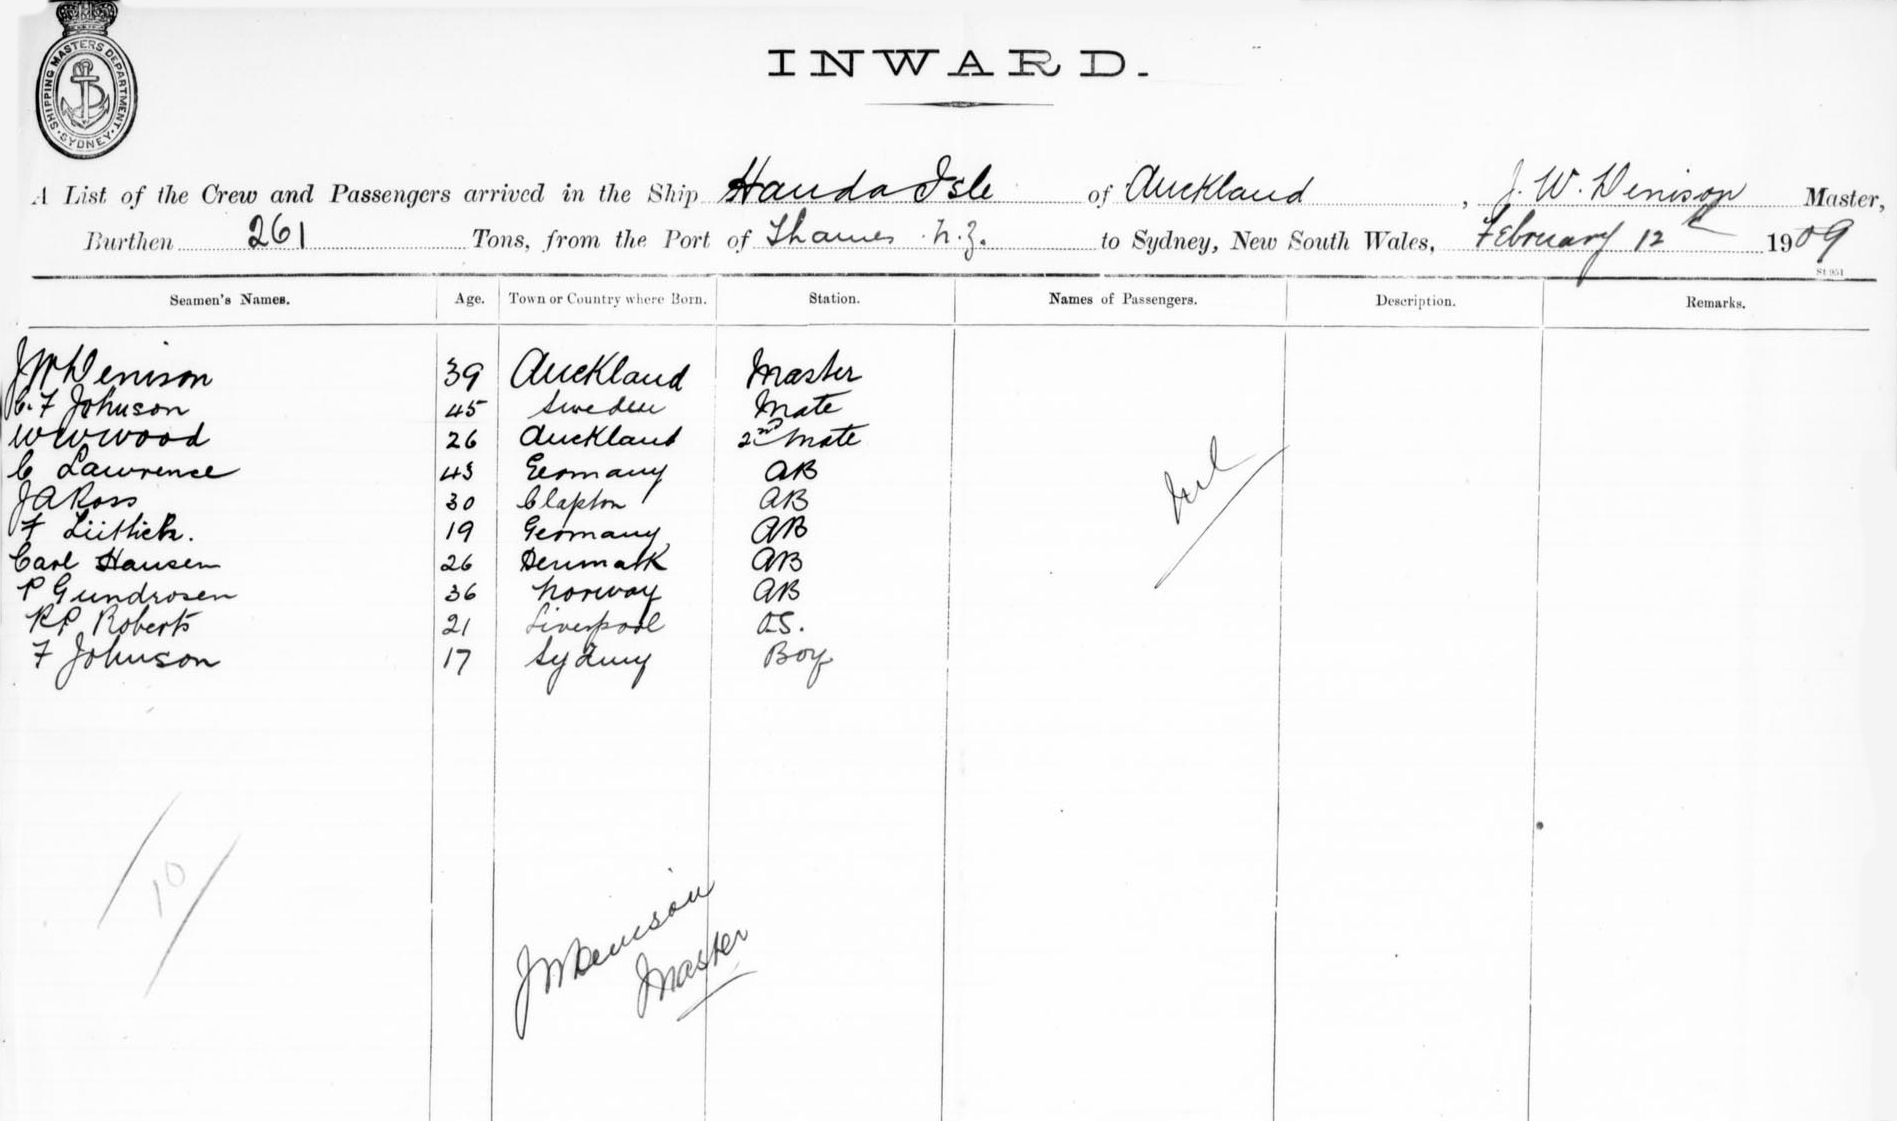 SHIPPING MASTERS DEPARTMENT · SYDNEY ·
INWARD.
A List of the Crew and Passengers arrived in the Ship Handa Isle of Auckland, J. W. Denison Master,
Burthen 261 Tons, from the Port of Thames N.Z. to Sydney, New South Wales, February 12th 1909
St 951
Seamen's Names. Age. Town or Country where Born. Station. Names of Passengers. Description. Remarks.
J W Denison 39 Auckland Master
C. F Johnson 45 Sweden Mate
W W Wood 26 Auckland 2nd Mate
C Lawrence 43 Germany AB
J A Ross 30 Clapton AB
F Lüttich. 19 Germany AB
Carl Hansen 26 Denmark AB
P Gundrosen 36 Norway AB
R P Roberts 21 Liverpool OS.
F Johnson 17 Sydney Boy
Nil
10
J W Denison
Master